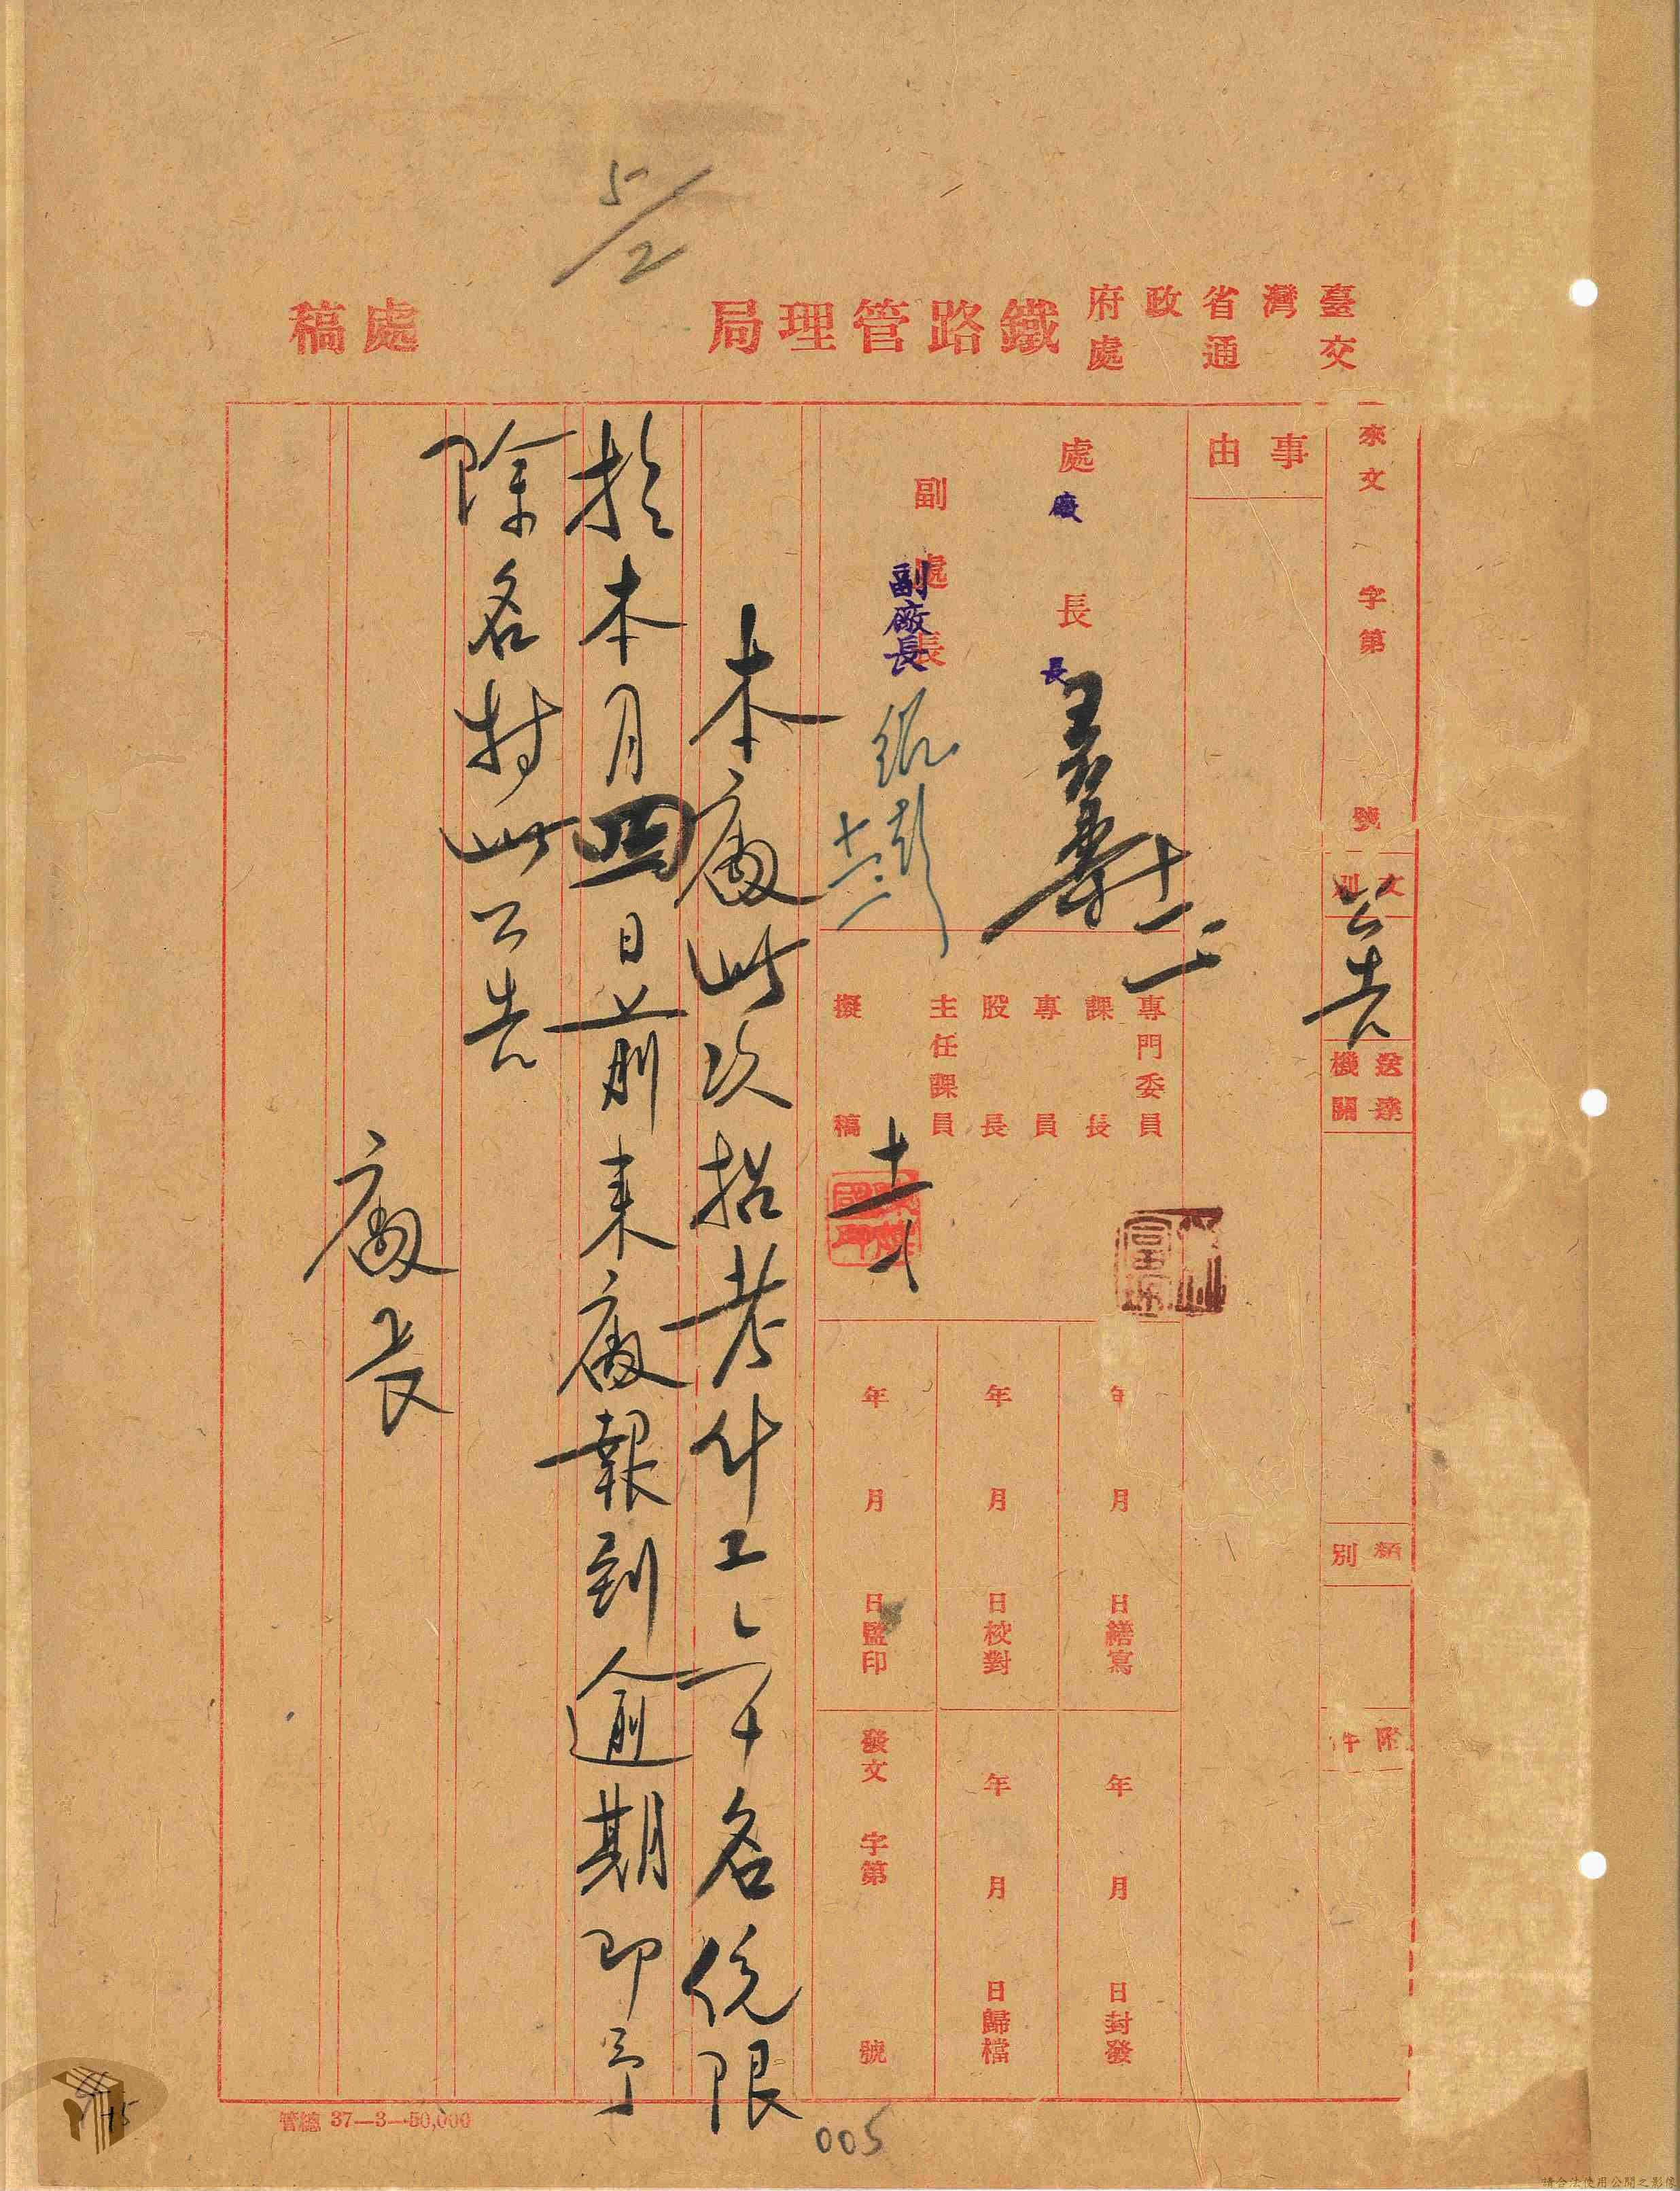 5/2
臺灣省政府
交通處
鐵路管理局
處稿
來文 字第 號
文別
公告
送達機關
類別
附件
事由
處長
廠長
十二 二
副處長
副廠長
十二 二
專門委員
課長
專員
股長
主任課員
擬稿
年 月 日繕寫
年 月 日校對
年 月 日監印
年 月 日封發
年 月 日歸檔
發文 字第 號
本廠此次招考什工二十名統限
於本月四日前來廠報到逾期即予
除名特此公告
廠長
管總 37—3—50,000
005
15
請合法使用公開之影像